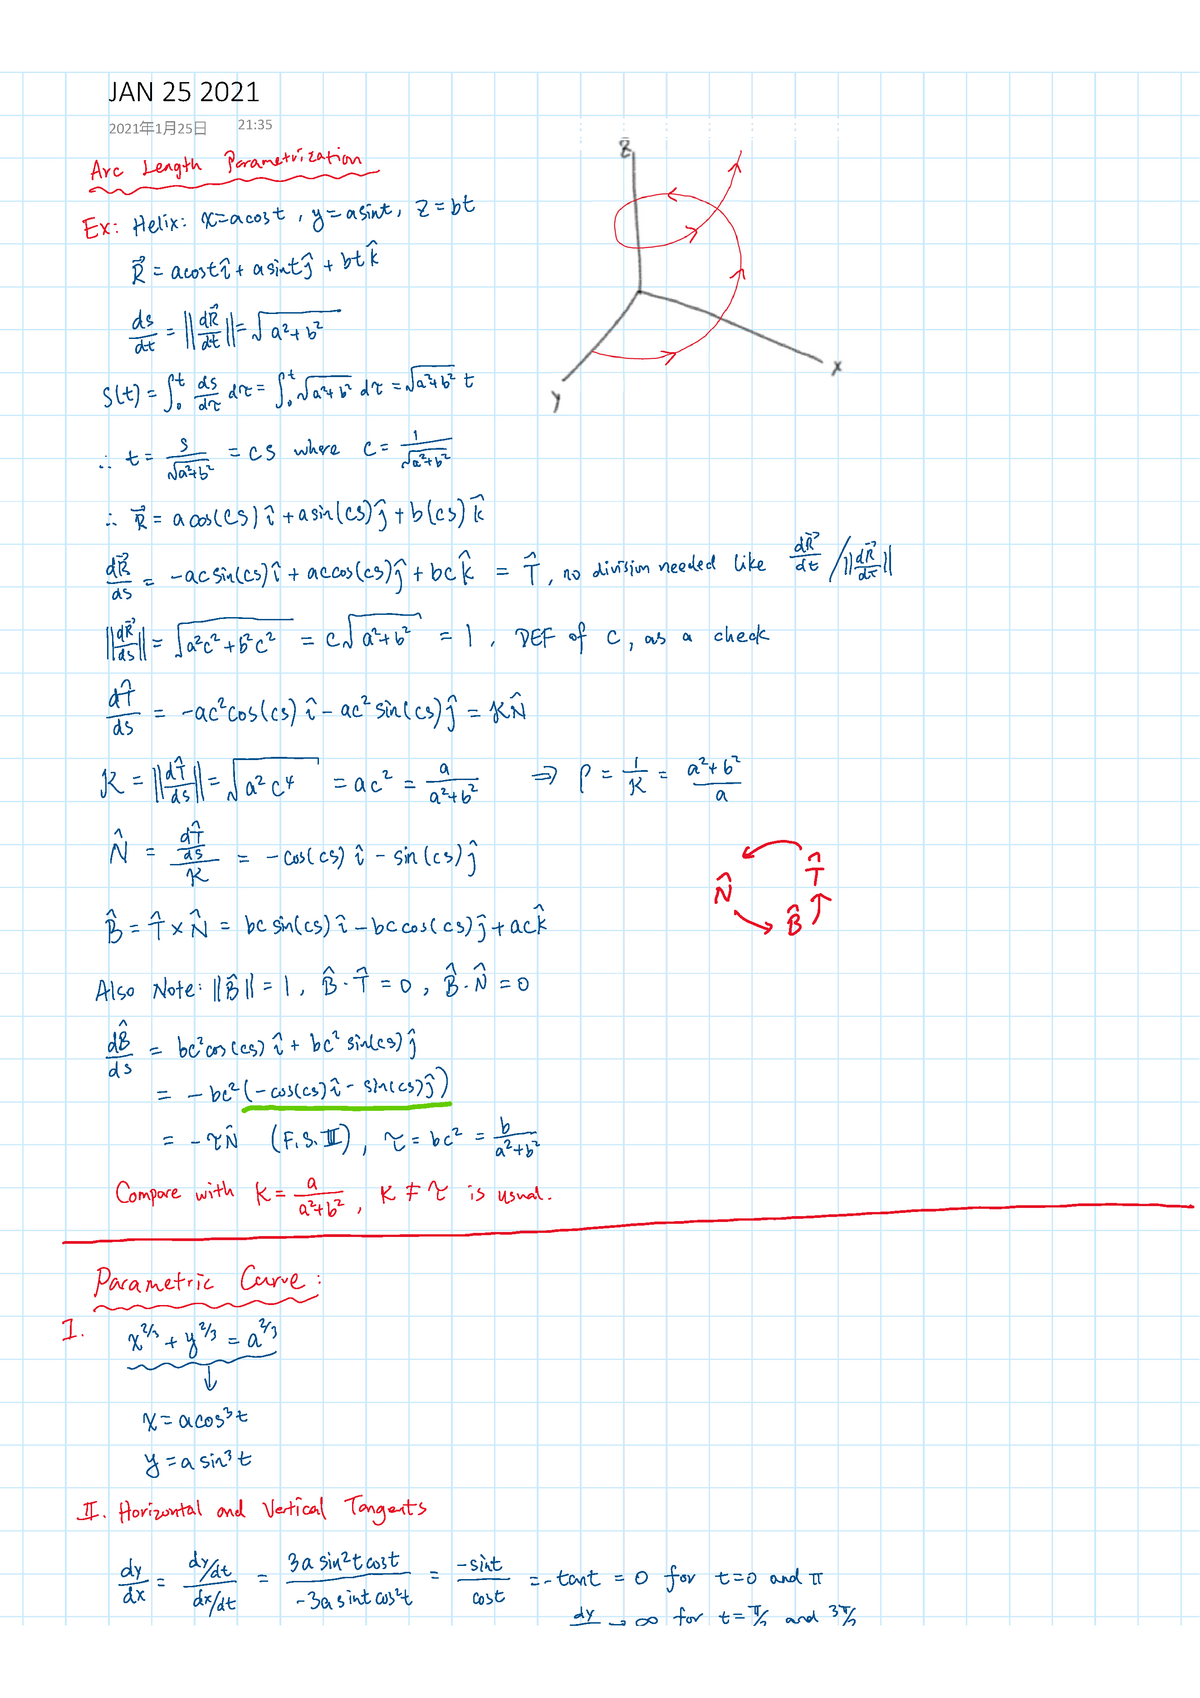 JAN 25 2021
2021年1月25日 21:35
Arc Length Parametrization
Ex: Helix: x=acost, y=asint, z=bt
R⃗ = acost î + asint ĵ + bt k̂
ds/dt = ||dR⃗/dt|| = √(a²+b²)
S(t) = ∫₀ᵗ ds/dτ dτ = ∫₀ᵗ √(a²+b²) dτ = √(a²+b²) t
∴ t = s/√(a²+b²) = cs where c = 1/√(a²+b²)
∴ R⃗ = a cos(cs) î + a sin(cs) ĵ + b(cs) k̂
dR⃗/ds = -ac sin(cs) î + ac cos(cs) ĵ + bc k̂ = T̂, no division needed like dR⃗/dt / ||dR⃗/dt||
||dR⃗/ds|| = √(a²c²+b²c²) = c√(a²+b²) = 1, DEF of c, as a check
dT̂/ds = -ac² cos(cs) î - ac² sin(cs) ĵ = KN̂
K = ||dT̂/ds|| = √(a²c⁴) = ac² = a/(a²+b²) ⇒ ρ = 1/K = (a²+b²)/a
N̂ = (dT̂/ds)/K = -cos(cs) î - sin(cs) ĵ
B̂ = T̂ × N̂ = bc sin(cs) î - bc cos(cs) ĵ + ac k̂
Also Note: ||B̂|| = 1, B̂·T̂ = 0, B̂·N̂ = 0
dB̂/ds = bc² cos(cs) î + bc² sin(cs) ĵ
= -bc² (-cos(cs) î - sin(cs) ĵ)
= -τN̂ (F.S.III), τ = bc² = b/(a²+b²)
Compare with K = a/(a²+b²), K ≠ τ is usual.
z
x
y
T̂
N̂
B̂
Parametric Curve:
I. x^(2/3) + y^(2/3) = a^(2/3)
↓
x = acos³t
y = a sin³t
II. Horizontal and Vertical Tangents
dy/dx = (dy/dt)/(dx/dt) = (3a sin²t cost)/(-3a sint cos²t) = -sint/cost = -tant = 0 for t=0 and π
dy → ∞ for t=π/2 and 3π/2